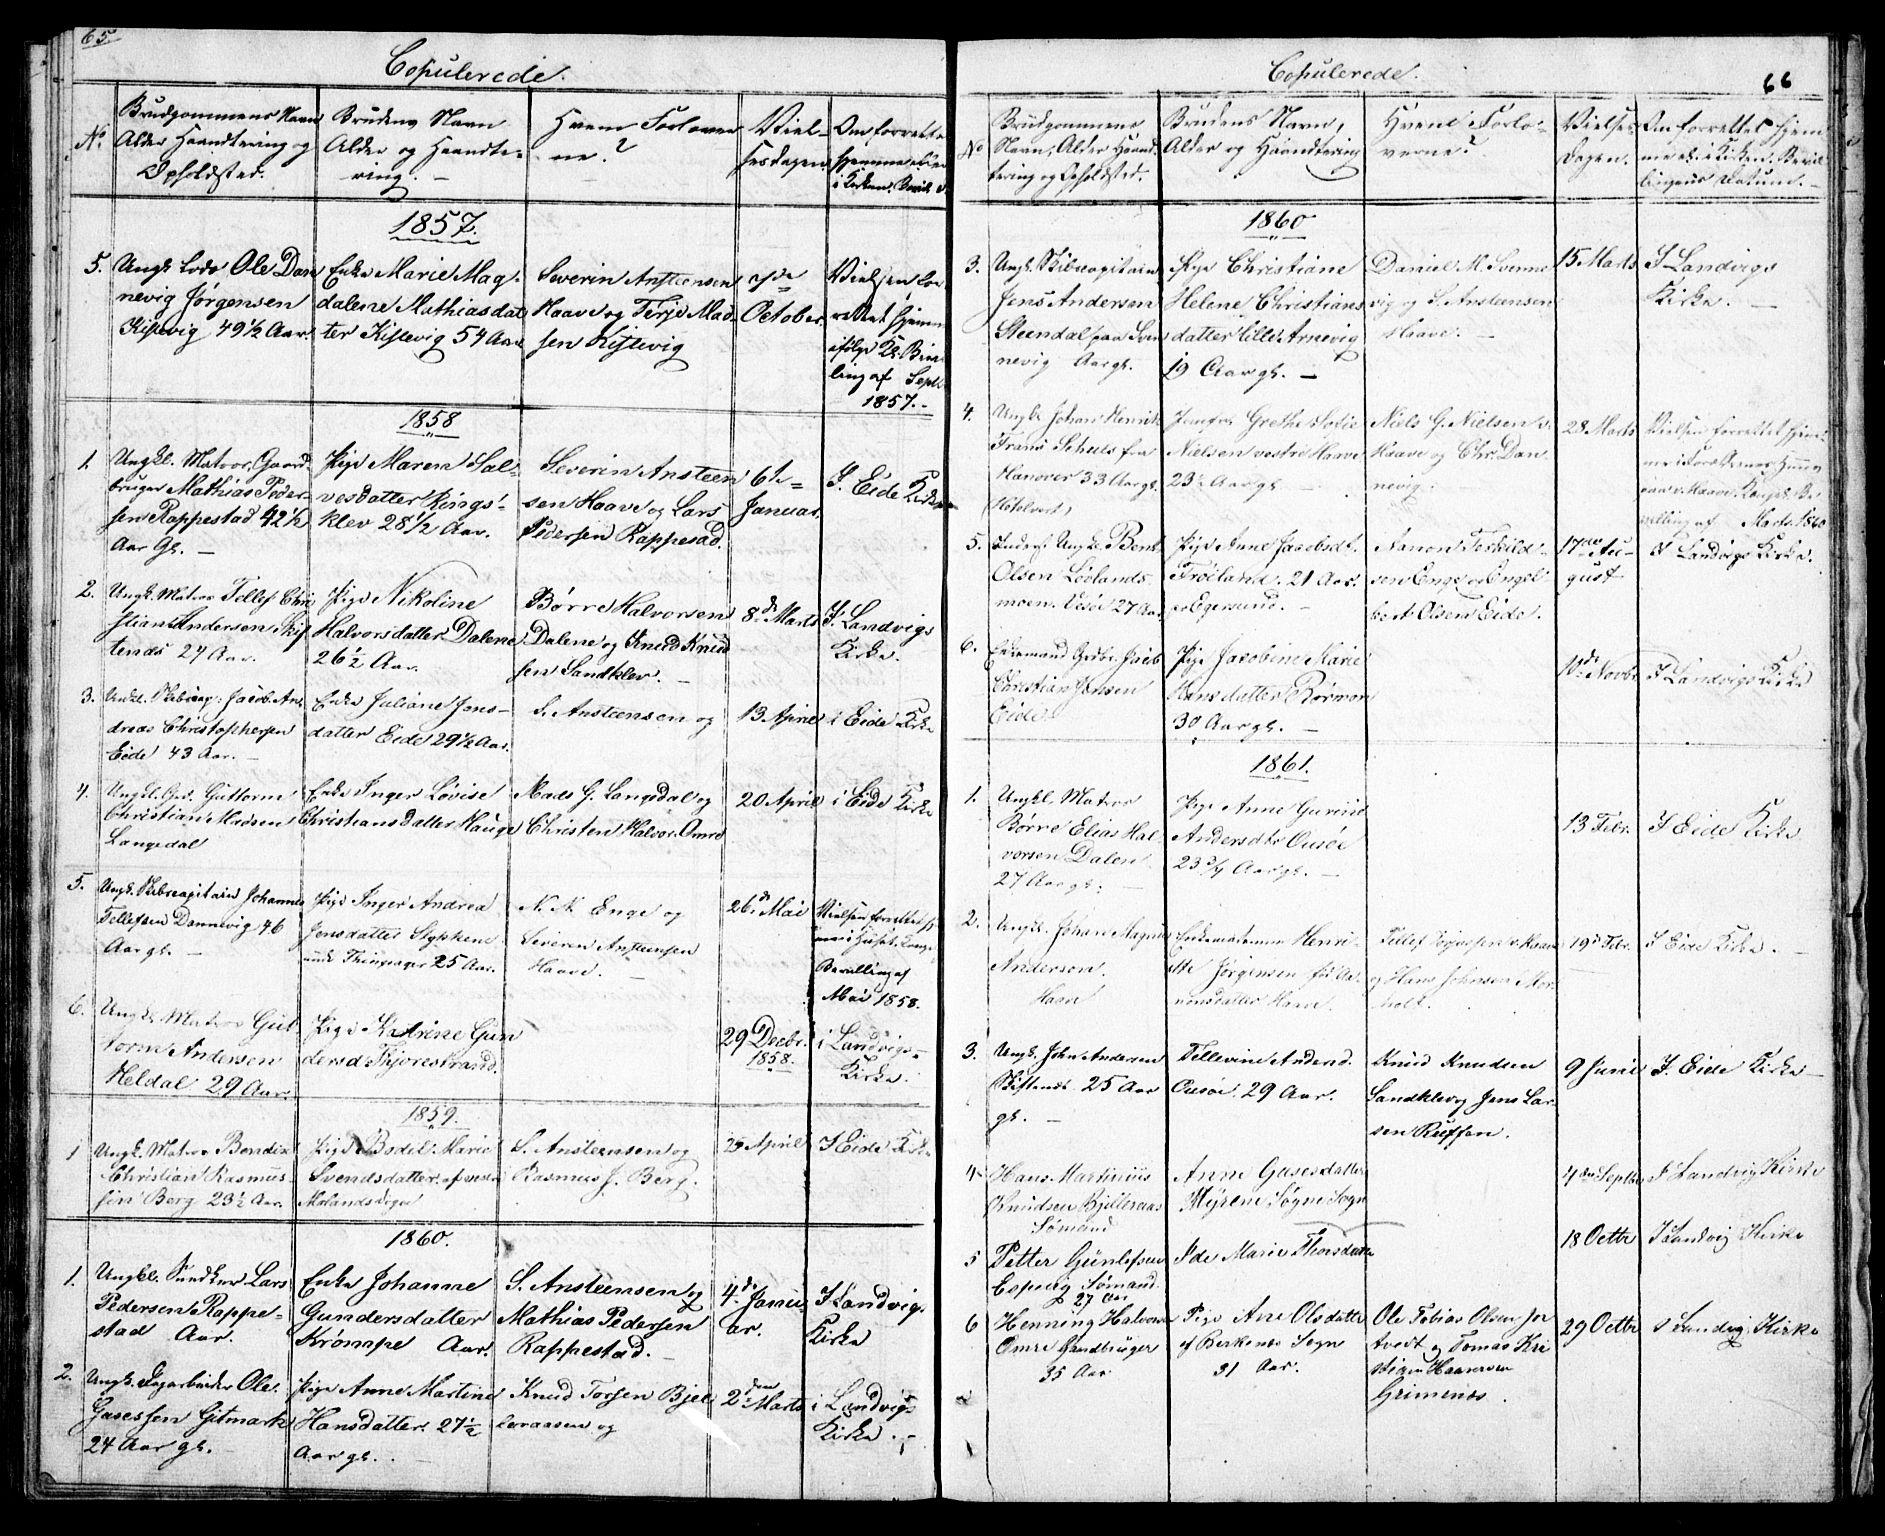 65
Copulerede.
No.
Brudgommens Navn
Alder Haandtering og
Opholdsted.
Brudens Navn
Alder og Haandte-
ring. -
Hvem Forlover-
ne?
Viel-
sesdagen.
Om forrettet
hjemme eller
i Kirken.
1857.
5. Ungk. Lods Ole Dan
nevig Jørgensen
Kistevig 49 1/2 Aar.
Enke Marie Mag-
dalene Mathiasdat
ter Kistevig 54 Aar
Severin Ansteensen
Haave og Terje Mad-
sen Kistevig
7de
October.
Vielsen for
rettet hjemme
ifølge Kgl. Bevil
ling af Septbr
1857.-
1858
1. Ungkl. Matros, Gaard-
bruger Mathias Peder-
sen Rappestad 42 1/2
Aar Gl. -
Pige Maren Sal-
vesdatter Rings-
klev 28 1/2 Aar.
Severin Ansteen
sen Haave og Lars
Pedersen Rappestad.
6te
Januar.
I Eide Kirke
2. Ungk. Matros Tellef Chri
stian Andersen Skif
tenes 24 Aar.
Pige Nikoline
Halvorsdatter Dalene
26 1/2 Aar.
Børre Halvorsen
Dalene og Knud Knud
sen Sandklev. -
8de Marts
I Landvigs
Kirke.
3. Ungkl. Skibscap: Jacob An
dreas Christophersen
Eide 43 Aar. -
Enke Juliane Jens-
datter Eide 29 1/2 Aar.
S. Ansteensen og
13 April
i Eide Kirke
4. Ungkl. Guttorm
Christian Madsen
Langedal
Enke Inger Lovise
Christiansdatter Hauge
Mads G. Langedal og
Christen Halvor. Omre
20 April
i Eide Kirke
5. Ungk. Skibscapitain Johannes
Tellefsen Dannevig 46
Aar gl. -
Pige Inger Andrea
Jensdatter
25 Aar.
N. N. Enge og
Severin Ansteensen
Haave. -
26de Mai
Vielsen forrettet hjem
me i Huset. Kongl.
Bevilling af
Mai 1858.
6. Ungkl. Matros Gut-
torm Andersen
Heldal 29 Aar.
Pige Katrine Gun
dersd Fjorestrand.
29 Decbr.
1858.
i Landvigs
Kirke.
1859.
1 Ungk. Matros Bendix
Christian Rasmus-
sen Berg 23 1/2 Aar.
Pige Bodil Marie
Svendsdatter af
S. Ansteensen og
Rasmus J. Berg.
25 April
I Eide Kirke
1860.
1. Ungkl. Lars
Pedersen Rappe-
stad Aar.
Enke Johanne
Gundersdatter
Krømpe Aar.
S. Ansteensen og
Mathias Pedersen
Rappestad. -
4de Janu-
ar.
I Landvigs
Kirke
2. Ungk. Dagarbeider Ole
Gusessen Gitmark
24 Aar gl. -
Pige Anne Martine
Hansdatter. 27 1/2
Aar gl. .
Knud Torsen Bjel
leraasen og
2den Marts
i Landvigs
Kirke. -
66
Copulerede.
No
Brudgommens
Navn, Alder Haand-
tering og Opholdsted.
Brudens Navn,
Alder og Haandtering
Hvem Forlo-
verne?
Vielses-
Dagen.
Om forrettet hjem-
me el. i Kirken. Bevil
lingens Datum. -
1860
3. Ungk. Skibscapitain
Jens Andersen
Steendal paa Sven
nevig Aar gl.
Pige Christiane
Helene Christians
datter Lille Arnevig
19 Aar gl. -
Daniel M. Svenne
vig og S. Ansteensen
Haave. -
15 Marts
I Landvigs
Kirke. -
4. Ungk. Johan Henrik
Frans Schuls fra
Hanover 33 Aar gl.
Jomfru Grethe Sofie
Nielsen vestre Haave
23 1/2 Aar gl.
Niels G. Nielsen v.
Haave og Chr. Dan
nevig.
28 Marts
Vielsen forrettet hjem
me i
v. Haave. Kongl. Be
villing af Marts 1860
5. Ungk. Bent
Olsen Løvlands-
moen. Vesøe 27 Aar
Pige Anne Jacobsdt.
Frøiland. 21 Aar.
Egersund. -
Aanon Teskild-
sen Enge og Engel-
bert Olsen Eide.
17de Au-
gust
I Landvigs Kirke.
6. Enkemand Gdbr. Jacob
Christian Jensen
Eide
Pige Jacobine Marie
Hansdatter Rørmon
30 Aar gl. -
10de Novbr
I Landvigs Kirke
1861.
1. Ungkl. Matros
Børre Elias Hal-
vorsen Dalen
27 Aar gl. -
Pige Anne Gurine
Andersdtr Ousøe
23 3/4 Aar gl. -
13 Febr.
I Eide Kirke
2. Ungk. Johan Magnus
Anderson
Haave
Henri-
ette Jørgensen
Haave.
Tellef
og Hans Johnsen Mor-
holt.
19 Febr.
I Eide Kirke. -
3. Ungk. John Andersen
Skiftenes 25 Aar
gl. -
Tellevine Andersd.
Ousøe 29 Aar.
Knud Knudsen
Sandklev og Jens Lar-
sen Ruften.
9 Juni
I Eide Kirke
4. Hans Martinius
Knudsen Bjelleraas
Sømand
Anne Gusesdatter
Myrene Søgne Sogn
4de Septbr
I Landvig Kirke
5 Petter Gunlefsen
Espevig Sømand
27 Aar
Ide Marie Thorsdatter
18 Octbr
I Landvig Kirke
6 Henning Halvorsen
Omre Gaardbruger
35 Aar
Pige Ane Olsdatter
af Berkenes Sogn
31 Aar.
Ole Tobias Olsen Jor
tvedt og Tomas Kri
stian Haanesen
Grimenes.
29 Octbr
I Landvig Kirke